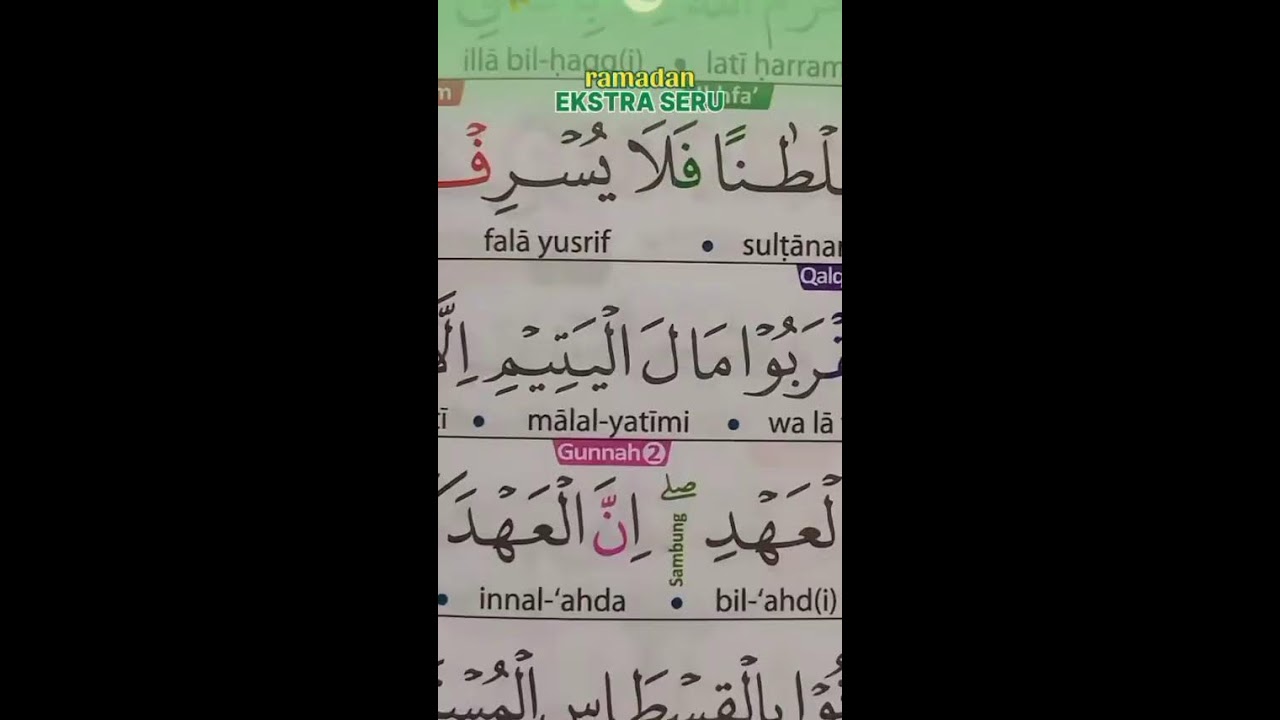 illā bil-ḥaqq(i) • latī ḥarram
ramadan
EKSTRA SERU
فَلَا يُسْرِفْ
falā yusrif • sulṭāna
مَالَ الْيَتِيْمِ اِلَّا
mālal-yatīmi • wa lā
Gunnah 2
الْعَهْدِ ۖ اِنَّ الْعَهْدَ
Sambung
innal-‘ahda • bil-‘ahd(i)
بِالْقِسْطَاسِ